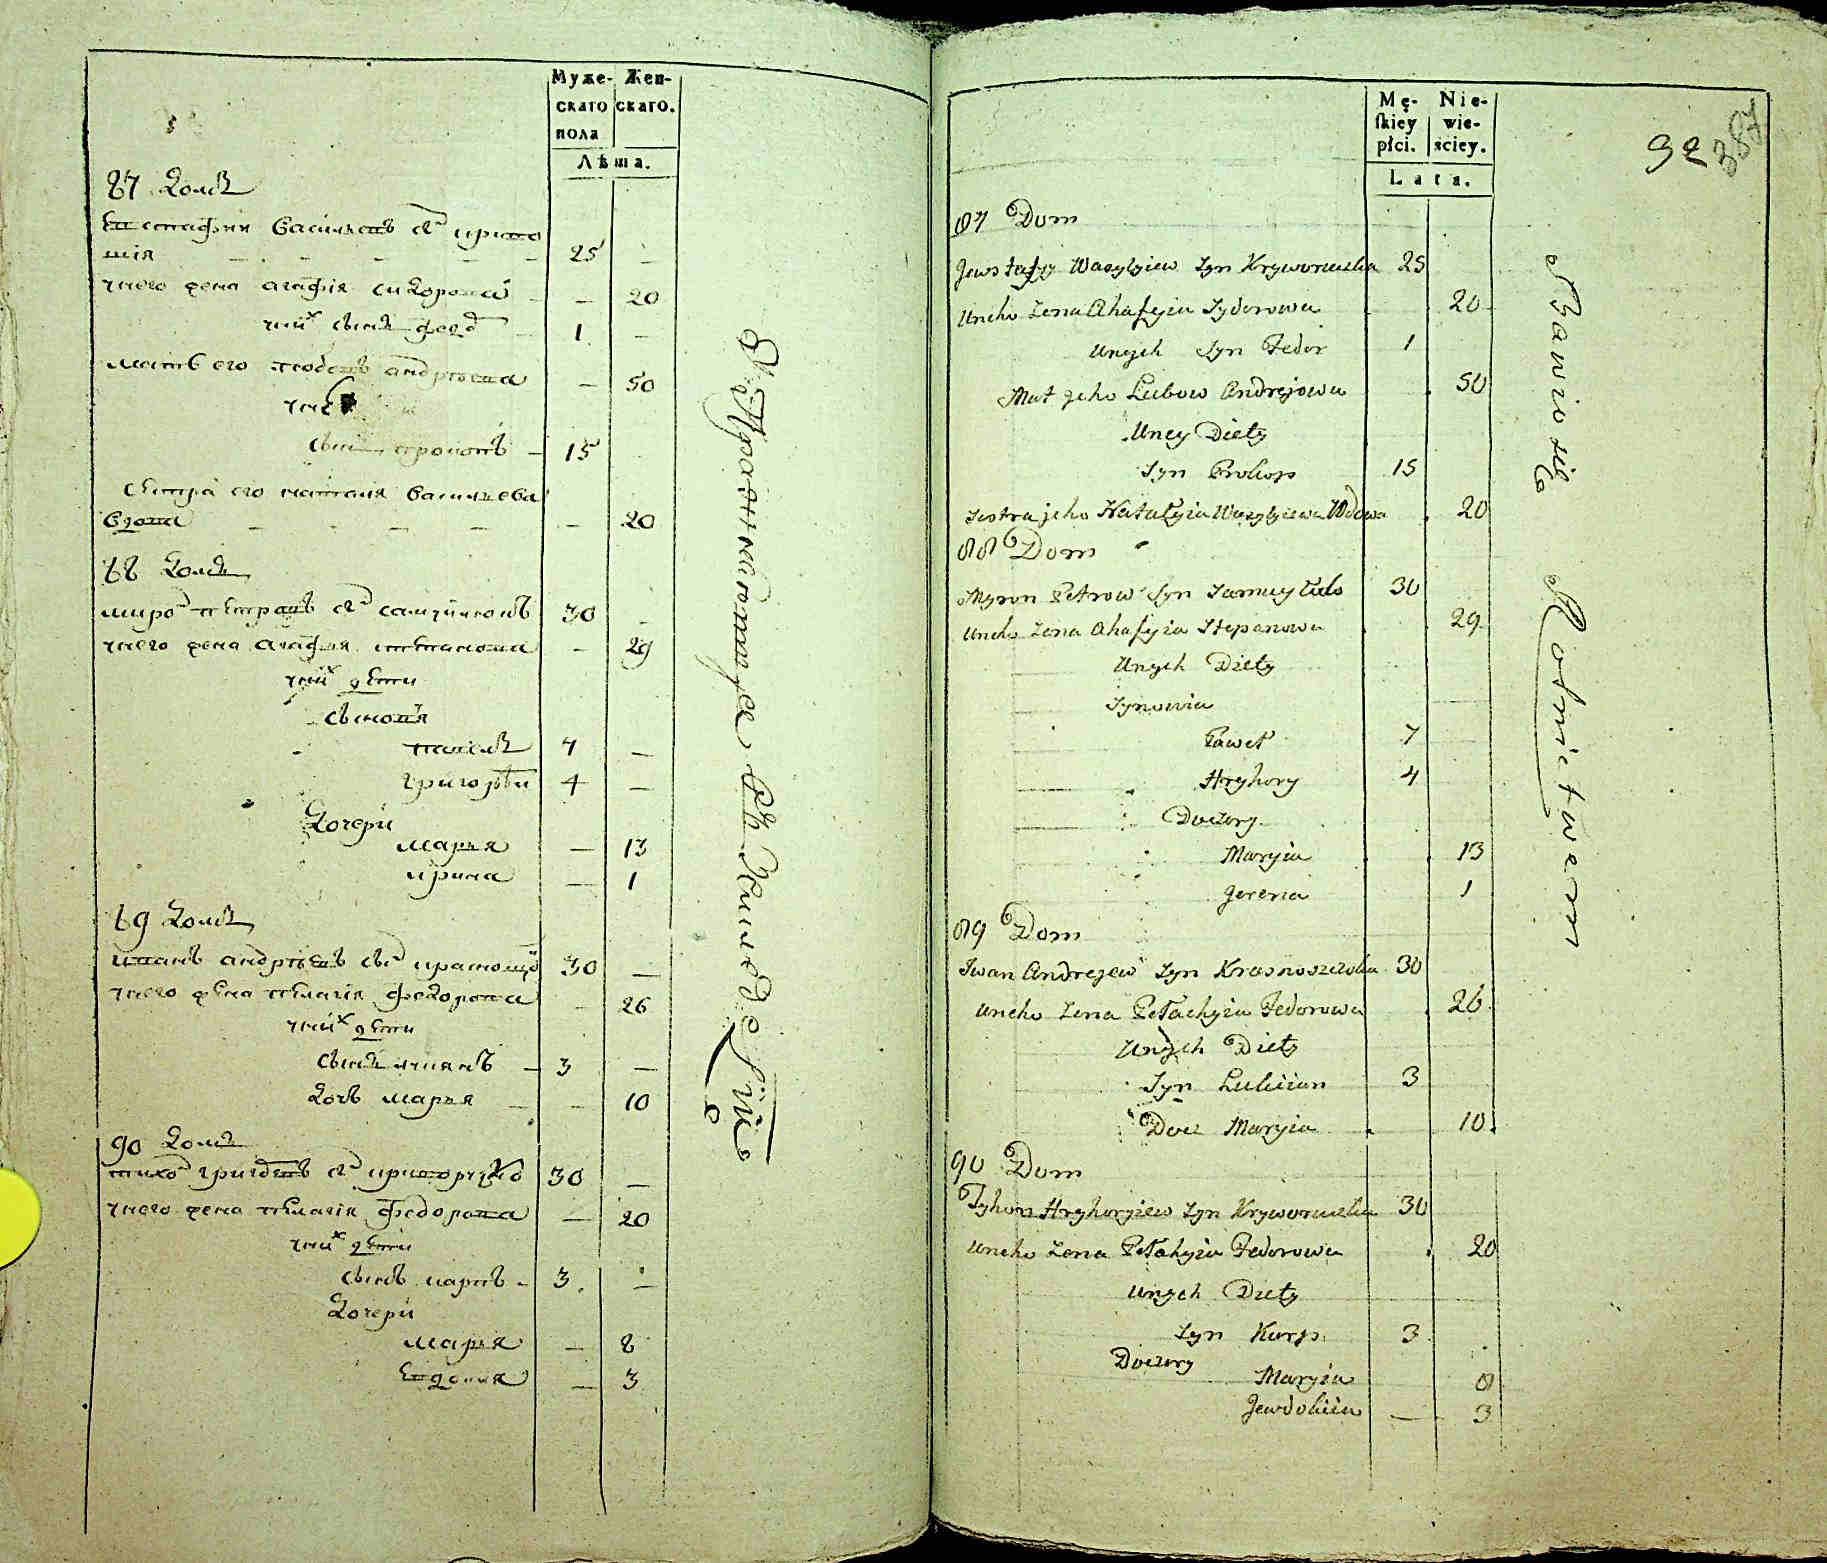 Муже- Жен-
скаго скаго.
пола
Лѣта.
87 Домъ
Евстафия Васильевъ сынъ криво
шія 25 –
у него жена агафія сидорова – 20
у них сынъ федо 1 –
мать его любовъ андреева – 50
у нее
сынъ прокопъ – 15
сестра его наталия васильева
вдова – 20
88 Домъ
миро петровъ сы самуйловъ 30 –
у него жена агафия степанова – 29
у них дети
сыновя
павелъ 7 –
григорей 4 –
Дочери
марья – 13
ирина – 1
89 Домъ
иванъ андреевъ сы красношо 30 –
у него жена пелагія федорова – 26
у них дети
сынъ лукиянъ – 3 –
дочь марья – 10
90 Домъ
тихо григоревъ сы криворучко 30 –
у него жена пелагія федорова – 20
у них дети
сынъ карпъ – 3 –
Дочери
марья – 8
Евдокия – 3
Упражняются въ Земледеліи
Mę- Nie-
skiey wie-
płci. ściey.
Lata.
92 387
87 Dom
Jewstafyy Wasylyiew Syn Kryworuczka 25
Uneho Zena Ahafyia Sydorowa 20
Unych Syn Fedor 1
Mat Jeho Lubow Andrejowa 50
Uney Diety
Syn Prokop 15
Sestra jeho Natalyia Wasylyiewa Wdowa 20
88 Dom
Myron Petrow Syn Samuyłuło 30
Uneho Zena Ahafyia Stepanowa 29
Unych Diety
Synowia
Paweł 7
Hryhory 4
Doczery
Maryia 13
Jerena 1
89 Dom
Iwan Andrejew Syn Krasnoszczoka 30
Uneho Zena Pełachyia Fedorowa 26
Unych Diety
Syn Lukiian 3
Docz Maryia 10
90 Dom
Tyhon Hryhoryiew Syn Kryworuczka 30
Uneho Zena Pełahyia Fedorowa 20
Unych Diety
Syn Karp 3
Doczery
Maryia 8
Jewdokiia – 3
Bawio się Rolnictwem